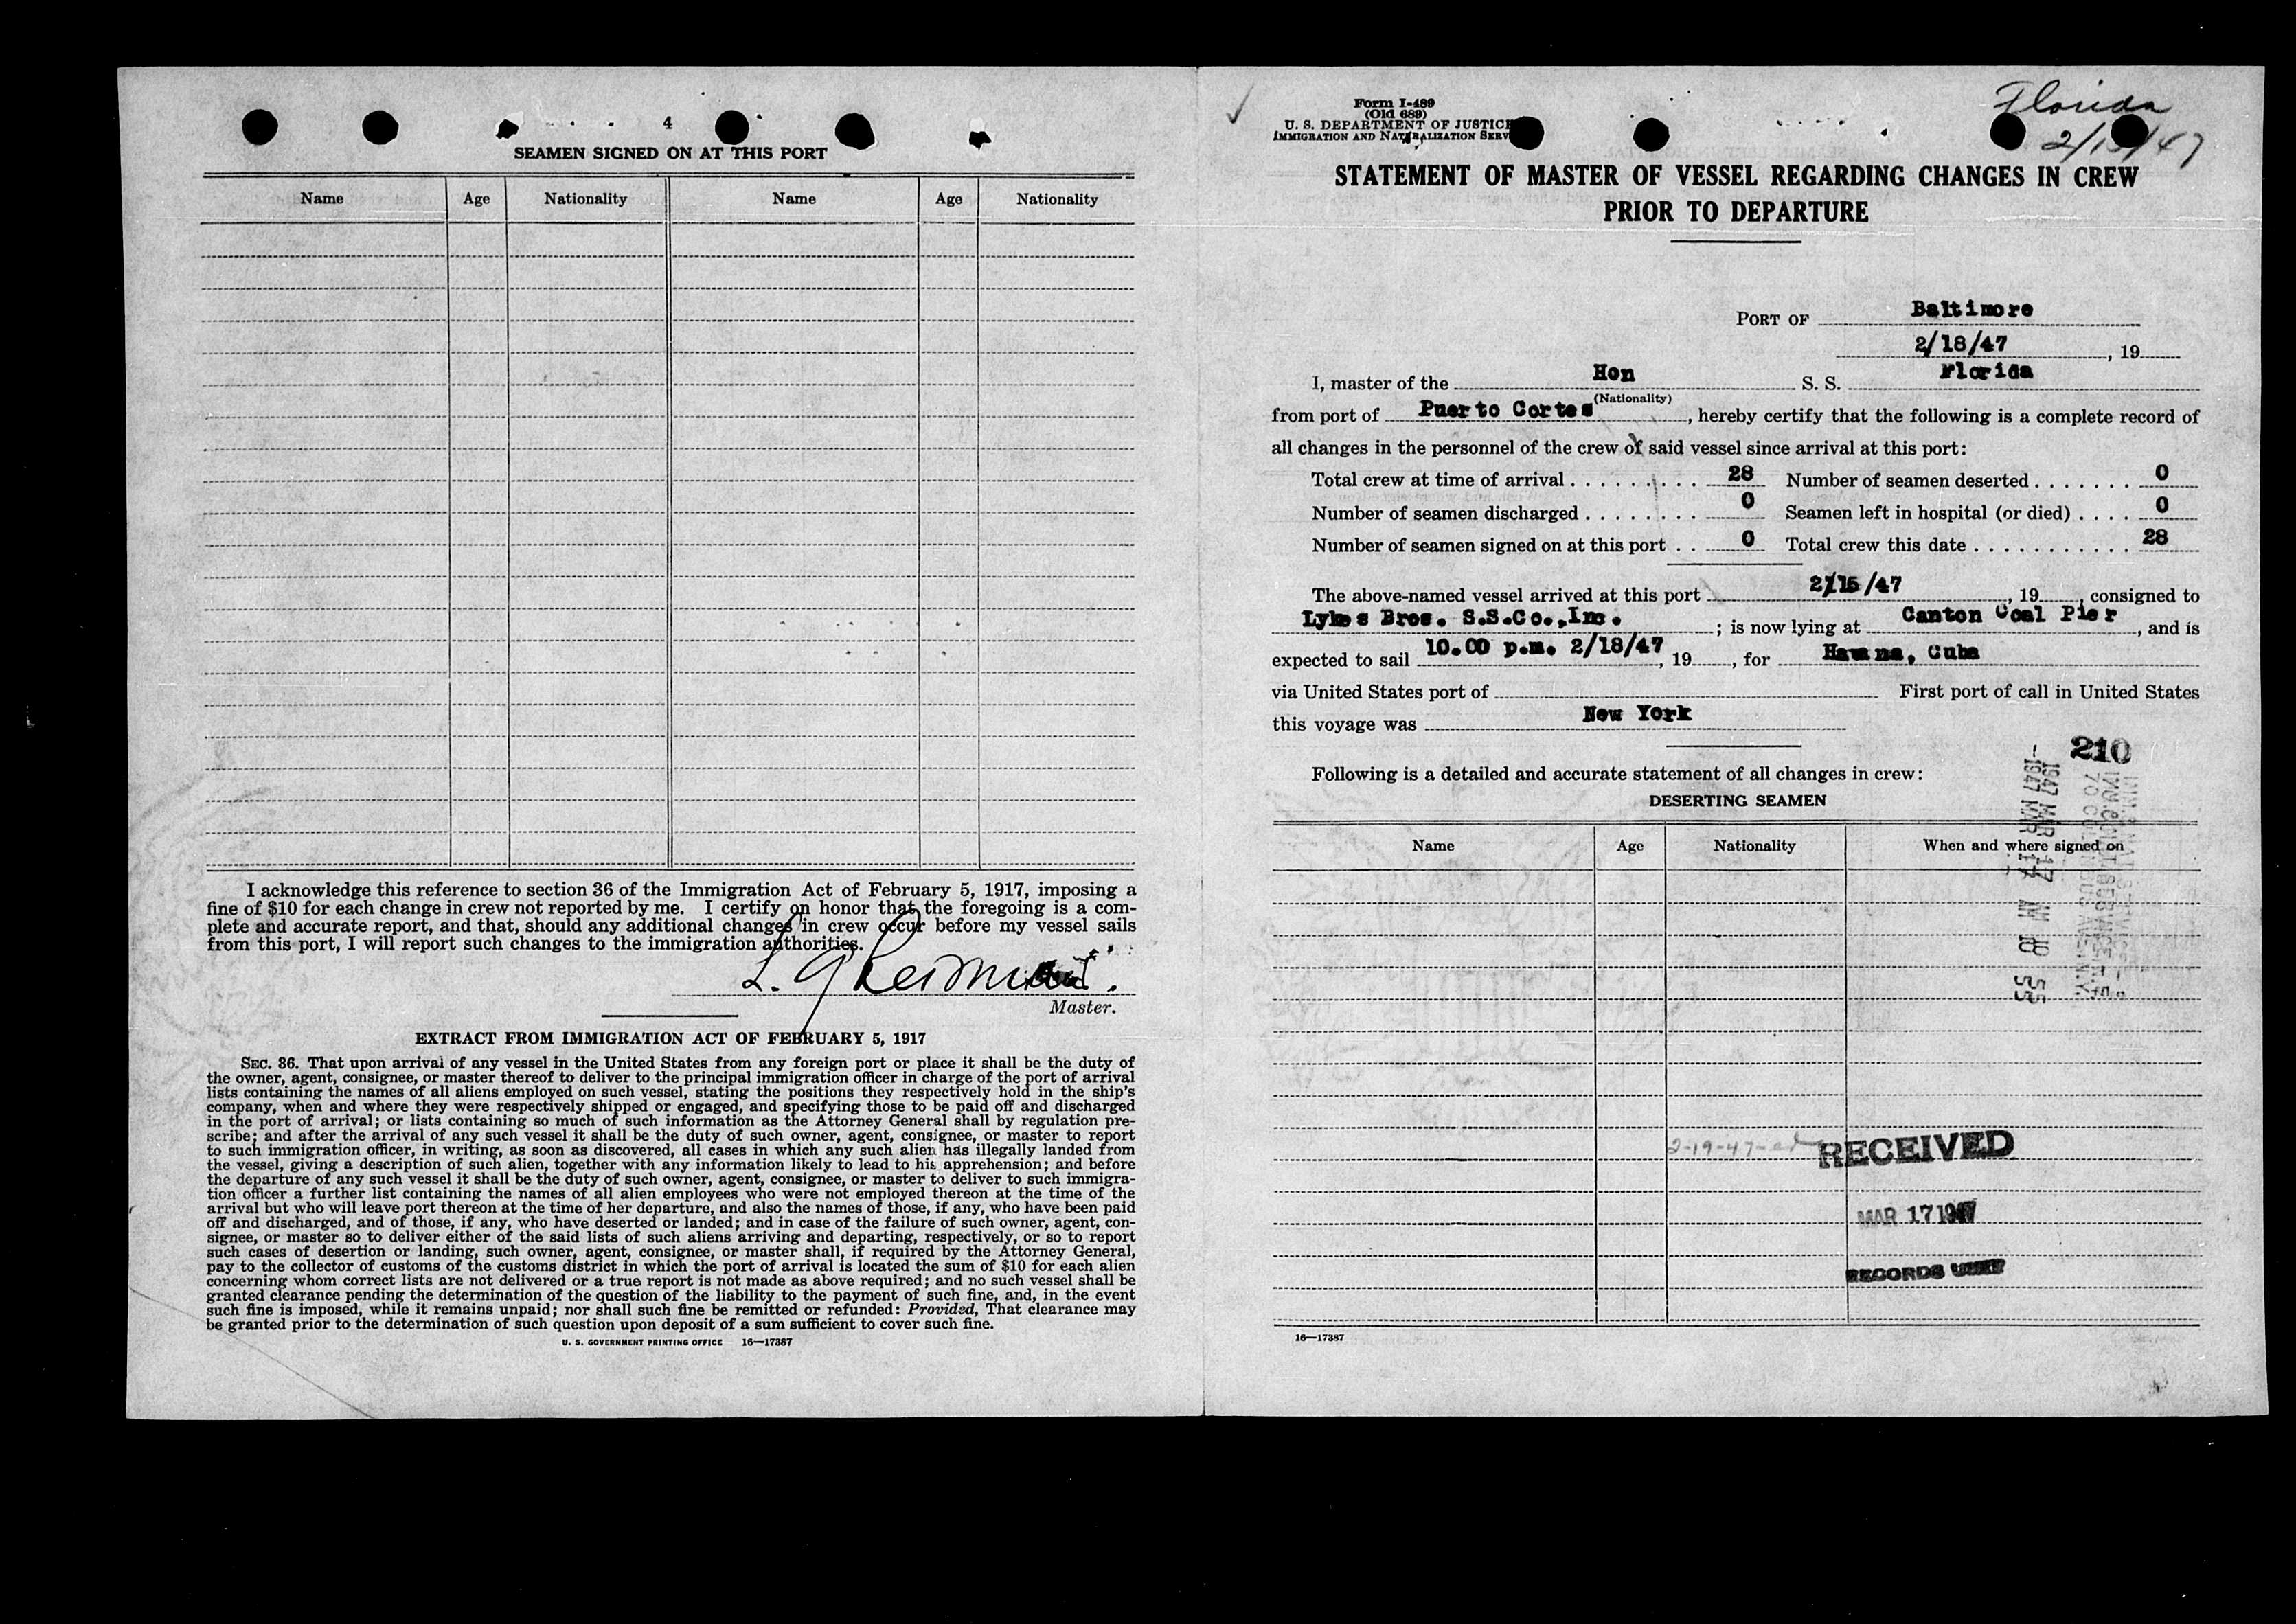 4
SEAMEN SIGNED ON AT THIS PORT
Name Age Nationality Name Age Nationality
I acknowledge this reference to section 36 of the Immigration Act of February 5, 1917, imposing a
fine of $10 for each change in crew not reported by me. I certify on honor that the foregoing is a com-
plete and accurate report, and that, should any additional changes in crew occur before my vessel sails
from this port, I will report such changes to the immigration authorities.
L.
Master.
EXTRACT FROM IMMIGRATION ACT OF FEBRUARY 5, 1917
SEC. 36. That upon arrival of any vessel in the United States from any foreign port or place it shall be the duty of
the owner, agent, consignee, or master thereof to deliver to the principal immigration officer in charge of the port of arrival
lists containing the names of all aliens employed on such vessel, stating the positions they respectively hold in the ship's
company, when and where they were respectively shipped or engaged, and specifying those to be paid off and discharged
in the port of arrival; or lists containing so much of such information as the Attorney General shall by regulation pre-
scribe; and after the arrival of any such vessel it shall be the duty of such owner, agent, consignee, or master to report
to such immigration officer, in writing, as soon as discovered, all cases in which any such alien has illegally landed from
the vessel, giving a description of such alien, together with any information likely to lead to his apprehension; and before
the departure of any such vessel it shall be the duty of such owner, agent, consignee, or master to deliver to such immigra-
tion officer a further list containing the names of all alien employees who were not employed thereon at the time of the
arrival but who will leave port thereon at the time of her departure, and also the names of those, if any, who have been paid
off and discharged, and of those, if any, who have deserted or landed; and in case of the failure of such owner, agent, con-
signee, or master so to deliver either of the said lists of such aliens arriving and departing, respectively, or so to report
such cases of desertion or landing, such owner, agent, consignee, or master shall, if required by the Attorney General,
pay to the collector of customs of the customs district in which the port of arrival is located the sum of $10 for each alien
concerning whom correct lists are not delivered or a true report is not made as above required; and no such vessel shall be
granted clearance pending the determination of the question of the liability to the payment of such fine, and, in the event
such fine is imposed, while it remains unpaid; nor shall such fine be remitted or refunded: Provided, That clearance may
be granted prior to the determination of such question upon deposit of a sum sufficient to cover such fine.
U. S. GOVERNMENT PRINTING OFFICE 16—17387
Form I-489
(Old 689)
U. S. DEPARTMENT OF JUSTICE
IMMIGRATION AND NATURALIZATION SERV
Florida
2/15/47
STATEMENT OF MASTER OF VESSEL REGARDING CHANGES IN CREW
PRIOR TO DEPARTURE
PORT OF Baltimore
2/18/47, 19
I, master of the Hon S. S. Florida
(Nationality)
from port of Puerto Cortes, hereby certify that the following is a complete record of
all changes in the personnel of the crew of said vessel since arrival at this port:
Total crew at time of arrival 28 Number of seamen deserted 0
Number of seamen discharged 0 Seamen left in hospital (or died) 0
Number of seamen signed on at this port 0 Total crew this date 28
The above-named vessel arrived at this port 2/15/47, 19, consigned to
Lykes Bros. S.S.Co.,Inc.; is now lying at Canton Coal Pier, and is
expected to sail 10.00 p.m. 2/18/47, 19, for Havana, Cuba
via United States port of First port of call in United States
this voyage was New York
210
Following is a detailed and accurate statement of all changes in crew:
DESERTING SEAMEN
Name Age Nationality When and where signed on
1947 MAR 17 AM 10 55
2-19-47-
RECEIVED
MAR 17 1947
RECORDS UNIT
16—17387